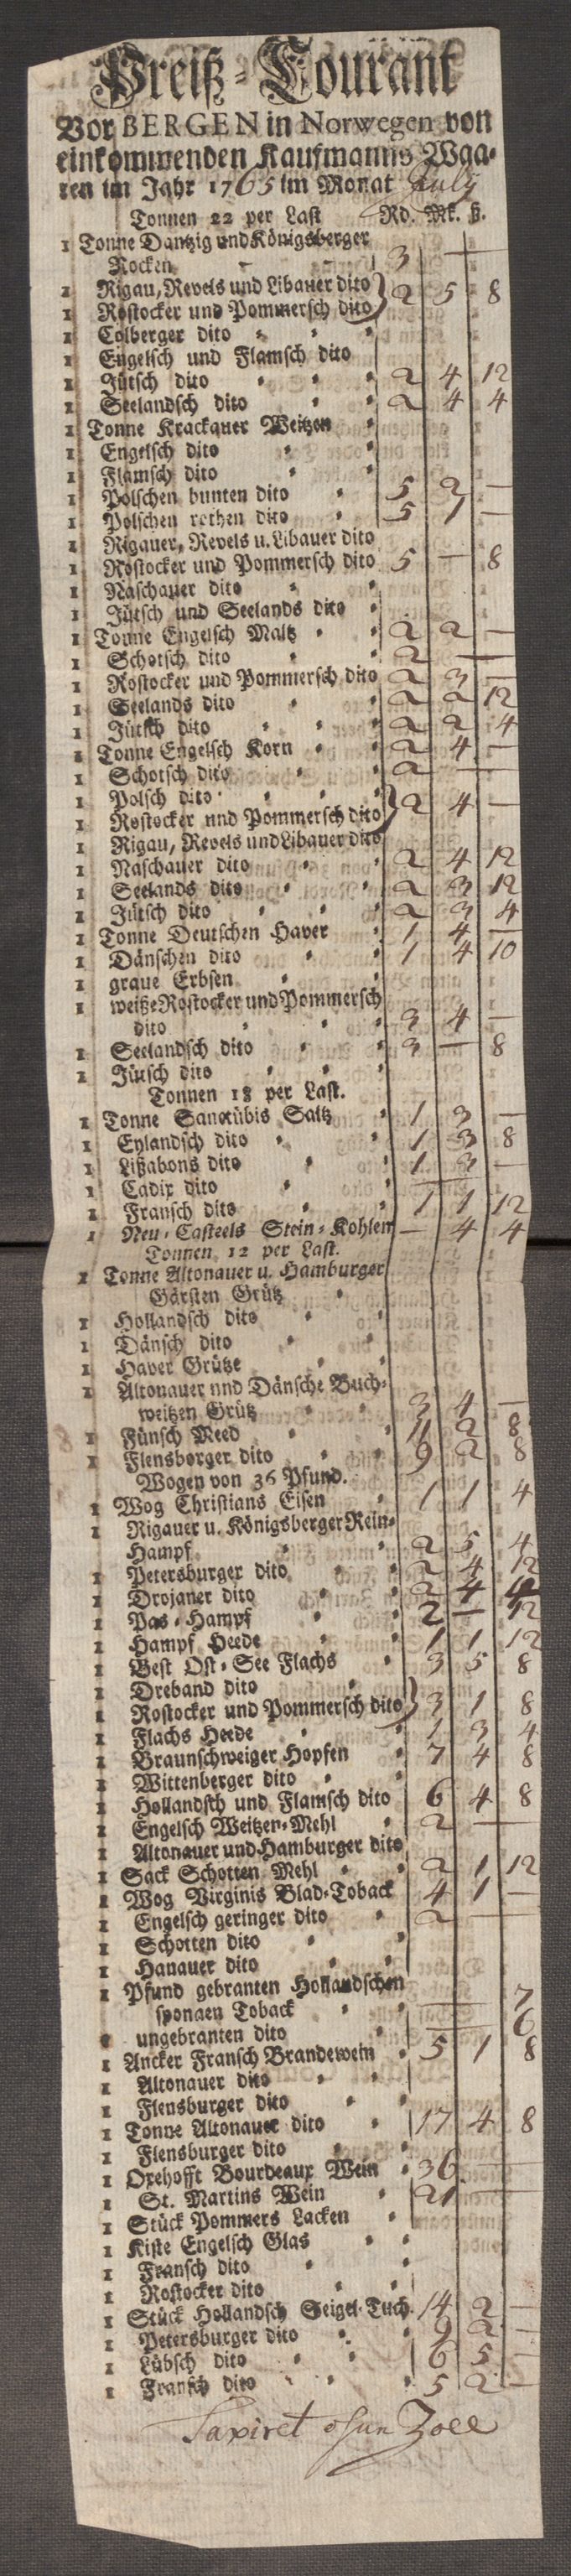 Preiß-Courant
Vor BERGEN in Norwegen von
einkommenden Kaufmanns Waa-
ren im Jahr 1765 im Monat July
Tonnen 22 per Last Rd. Mk. ß.
1 Tonne Dantzig und Königsberger
Rocken - - 3 —
1 Rigau, Revels und Libauer dito
1 Rostocker und Pommersch dito } 2 5 8
1 Colberger dito
1 Engelsch und Flamsch dito
1 Jütsch dito 2 4 12
1 Seelandsch dito 2 4 4
1 Tonne Krackauer Weitzen
1 Engelsch dito
1 Flamsch dito
1 Polschen bunten dito 5 2 —
1 Polschen rothen dito 5 1 —
1 Rigauer, Revels u. Libauer dito
1 Rostocker und Pommersch dito 5 — 8
1 Naschauer dito
1 Jütsch und Seelands dito
1 Tonne Engelsch Maltz 2 2 —
1 Schotsch dito 2 —
1 Rostocker und Pommersch dito 2 3 —
1 Seelands dito 2 2 12
1 Jütsch dito 2 2 4
1 Tonne Engelsch Korn 2 4 —
1 Schotsch dito 2 —
1 Polsch dito
1 Rostocker nnd Pommersch dito } 2 4 —
1 Rigau, Revels und Libauer dito
1 Naschauer dito 2 4 12
1 Seelands dito 2 3 12
1 Jütsch dito 2 3 4
1 Tonne Deutschen Haver 1 4 —
1 Dänschen dito 1 4 10
1 graue Erbsen
1 weitze Rostocker und Pommersch
dito 3 4 —
1 Seelandsch dito 3 — 8
1 Jütsch dito
Tonnen 18 per Last.
1 Tonne Sanctübis Saltz 1 3 —
1 Eylandsch dito 1 3 8
1 Lißabons dito 1 3 —
1 Cadix dito —
1 Fransch dito 1 1 12
1 Neu-Casteels Stein-Kohlen — 4 4
Tonnen 12 per Last.
1 Tonne Altonauer u. Hamburger
Gärsten Grütz
1 Hollandsch dito
1 Dänsch dito
1 Haver Grütze
1 Altonauer nnd Dänsche Buch-
weitzen Grütz 3 4 —
1 Fünsch Meed 11 2 8
1 Flensborger dito 9 2 8
Wogen von 36 Pfund.
1 Wog Christians Eisen 1 1 4
1 Rigauer u. Königsberger Rein-
Hampf 2 5 4
1 Petersburger dito 2 4 12
1 Drojaner dito 2 4
1 Pas-Hampf 2 — 12
1 Hampf Heede 1 1 12
1 Best Ost-See Flachs 3 5 8
1 Dreband dito
1 Rostocker und Pommersch dito } 3 1 8
1 Flachs Heede 1 3 4
1 Braunschweiger Hopfen 7 4 8
1 Wittenberger dito
1 Hollandsch und Flamsch dito 6 4 8
1 Engelsch Weitzen-Mehl 2 —
1 Altonauer und Hamburger dito
1 Sack Schotten Mehl 2 1 12
1 Wog Virginis Blad-Toback 4 1 —
1 Engelsch geringer dito 2 —
1 Schotten dito
1 Hanauer dito
1 Pfund gebranten Hollandschen
sponnen Toback — 7
ungebranten dito — 6
1 Ancker Fransch Brandewein 5 1 8
1 Altonauer dito
1 Flensburger dito
1 Tonne Altonauer dito 17 4 8
1 Flensburger dito
1 Oxehofft Bourdeaux Wein 36 —
1 St. Martins Wein 21 —
1 Stück Pommers Lacken
1 Kiste Engelsch Glas
1 Fransch dito
1 Rostocker dito
1 Stück Hollandsch Seigel-Tuch 14 2 —
1 Petersburger dito 9 2 —
1 Lübsch dito 6 5 —
1 Fransch dito 5 2 —
Taxiret ohne Zoll